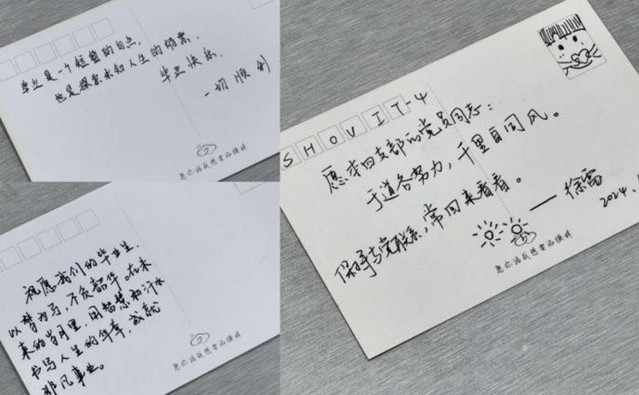 毕业是一个短暂的句点，
也是探索未知人生的伊始。
毕业快乐，
一切顺利
祝愿我们的毕业生，
以梦为马，不负韶华。在未
来的岁月里，用智慧和汗水
书写人生的华章，成就
非凡事业。
SHOU IT-4
愿本四支部的党员同志：
于道各努力，千里自同风。
保持与党联系，常回来看看。
——徐雷
2024.